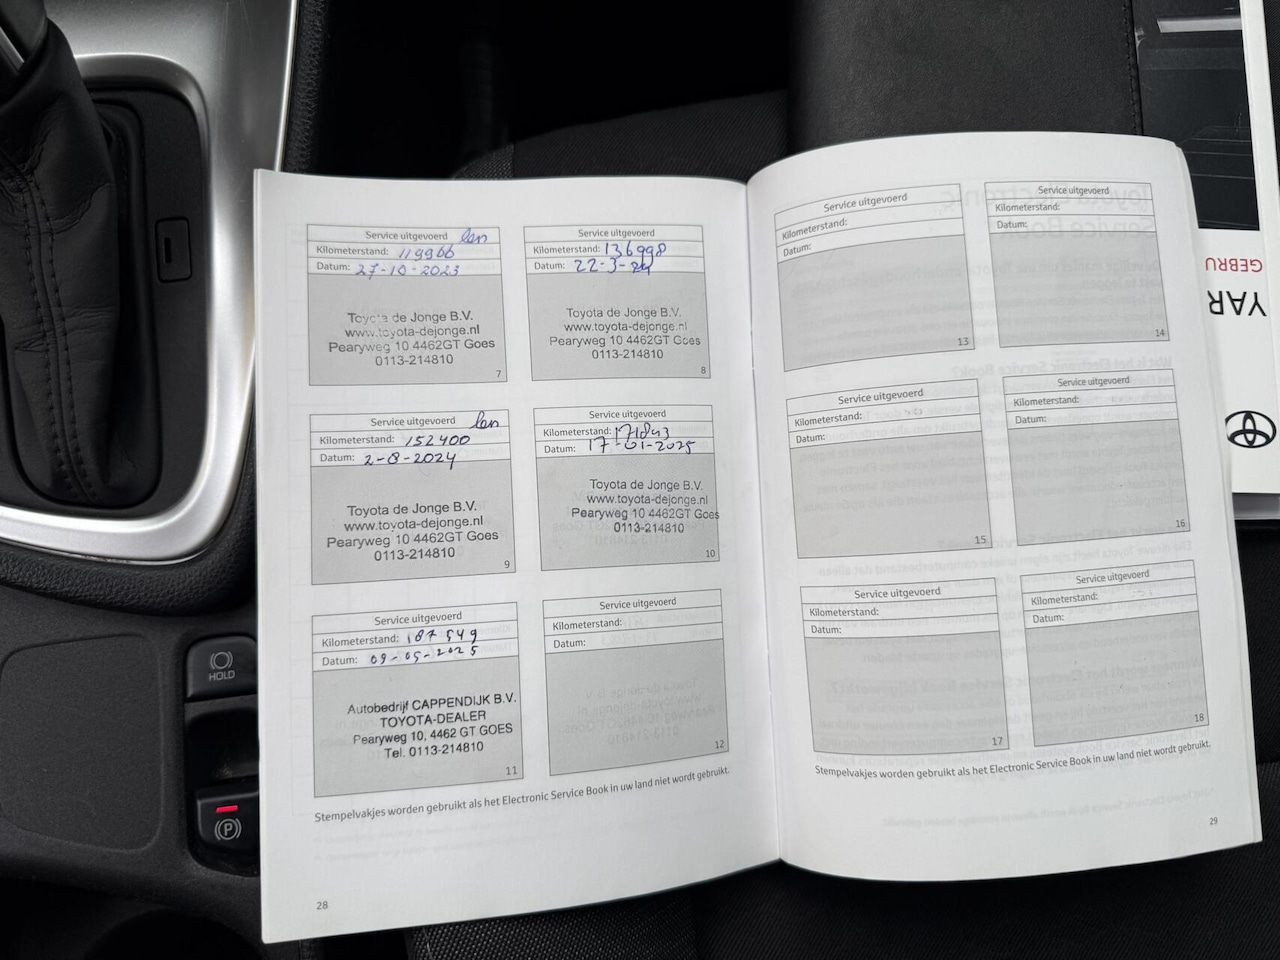 Service uitgevoerd
Kilometerstand: 119966
Datum: 27-10-2023
Toyota de Jonge B.V.
www.toyota-dejonge.nl
Pearyweg 10 4462GT Goes
0113-214810
7
Service uitgevoerd
Kilometerstand: 136998
Datum: 22-3-24
Toyota de Jonge B.V.
www.toyota-dejonge.nl
Pearyweg 10 4462GT Goes
0113-214810
8
Service uitgevoerd
Kilometerstand: 152400
Datum: 2-8-2024
Toyota de Jonge B.V.
www.toyota-dejonge.nl
Pearyweg 10 4462GT Goes
0113-214810
9
Service uitgevoerd
Kilometerstand: 171843
Datum: 17-01-2025
Toyota de Jonge B.V.
www.toyota-dejonge.nl
Pearyweg 10 4462GT Goes
0113-214810
10
Service uitgevoerd
Kilometerstand: 187549
Datum: 09-05-2025
Autobedrijf CAPPENDIJK B.V.
TOYOTA-DEALER
Pearyweg 10, 4462 GT GOES
Tel. 0113-214810
11
Service uitgevoerd
Kilometerstand:
Datum:
12
Stempelvakjes worden gebruikt als het Electronic Service Book in uw land niet wordt gebruikt.
28
Service uitgevoerd
Kilometerstand:
Datum:
13
Service uitgevoerd
Kilometerstand:
Datum:
14
Service uitgevoerd
Kilometerstand:
Datum:
15
Service uitgevoerd
Kilometerstand:
Datum:
16
Service uitgevoerd
Kilometerstand:
Datum:
17
Service uitgevoerd
Kilometerstand:
Datum:
18
Stempelvakjes worden gebruikt als het Electronic Service Book in uw land niet wordt gebruikt.
29
HOLD
P
GEBRU
YAR